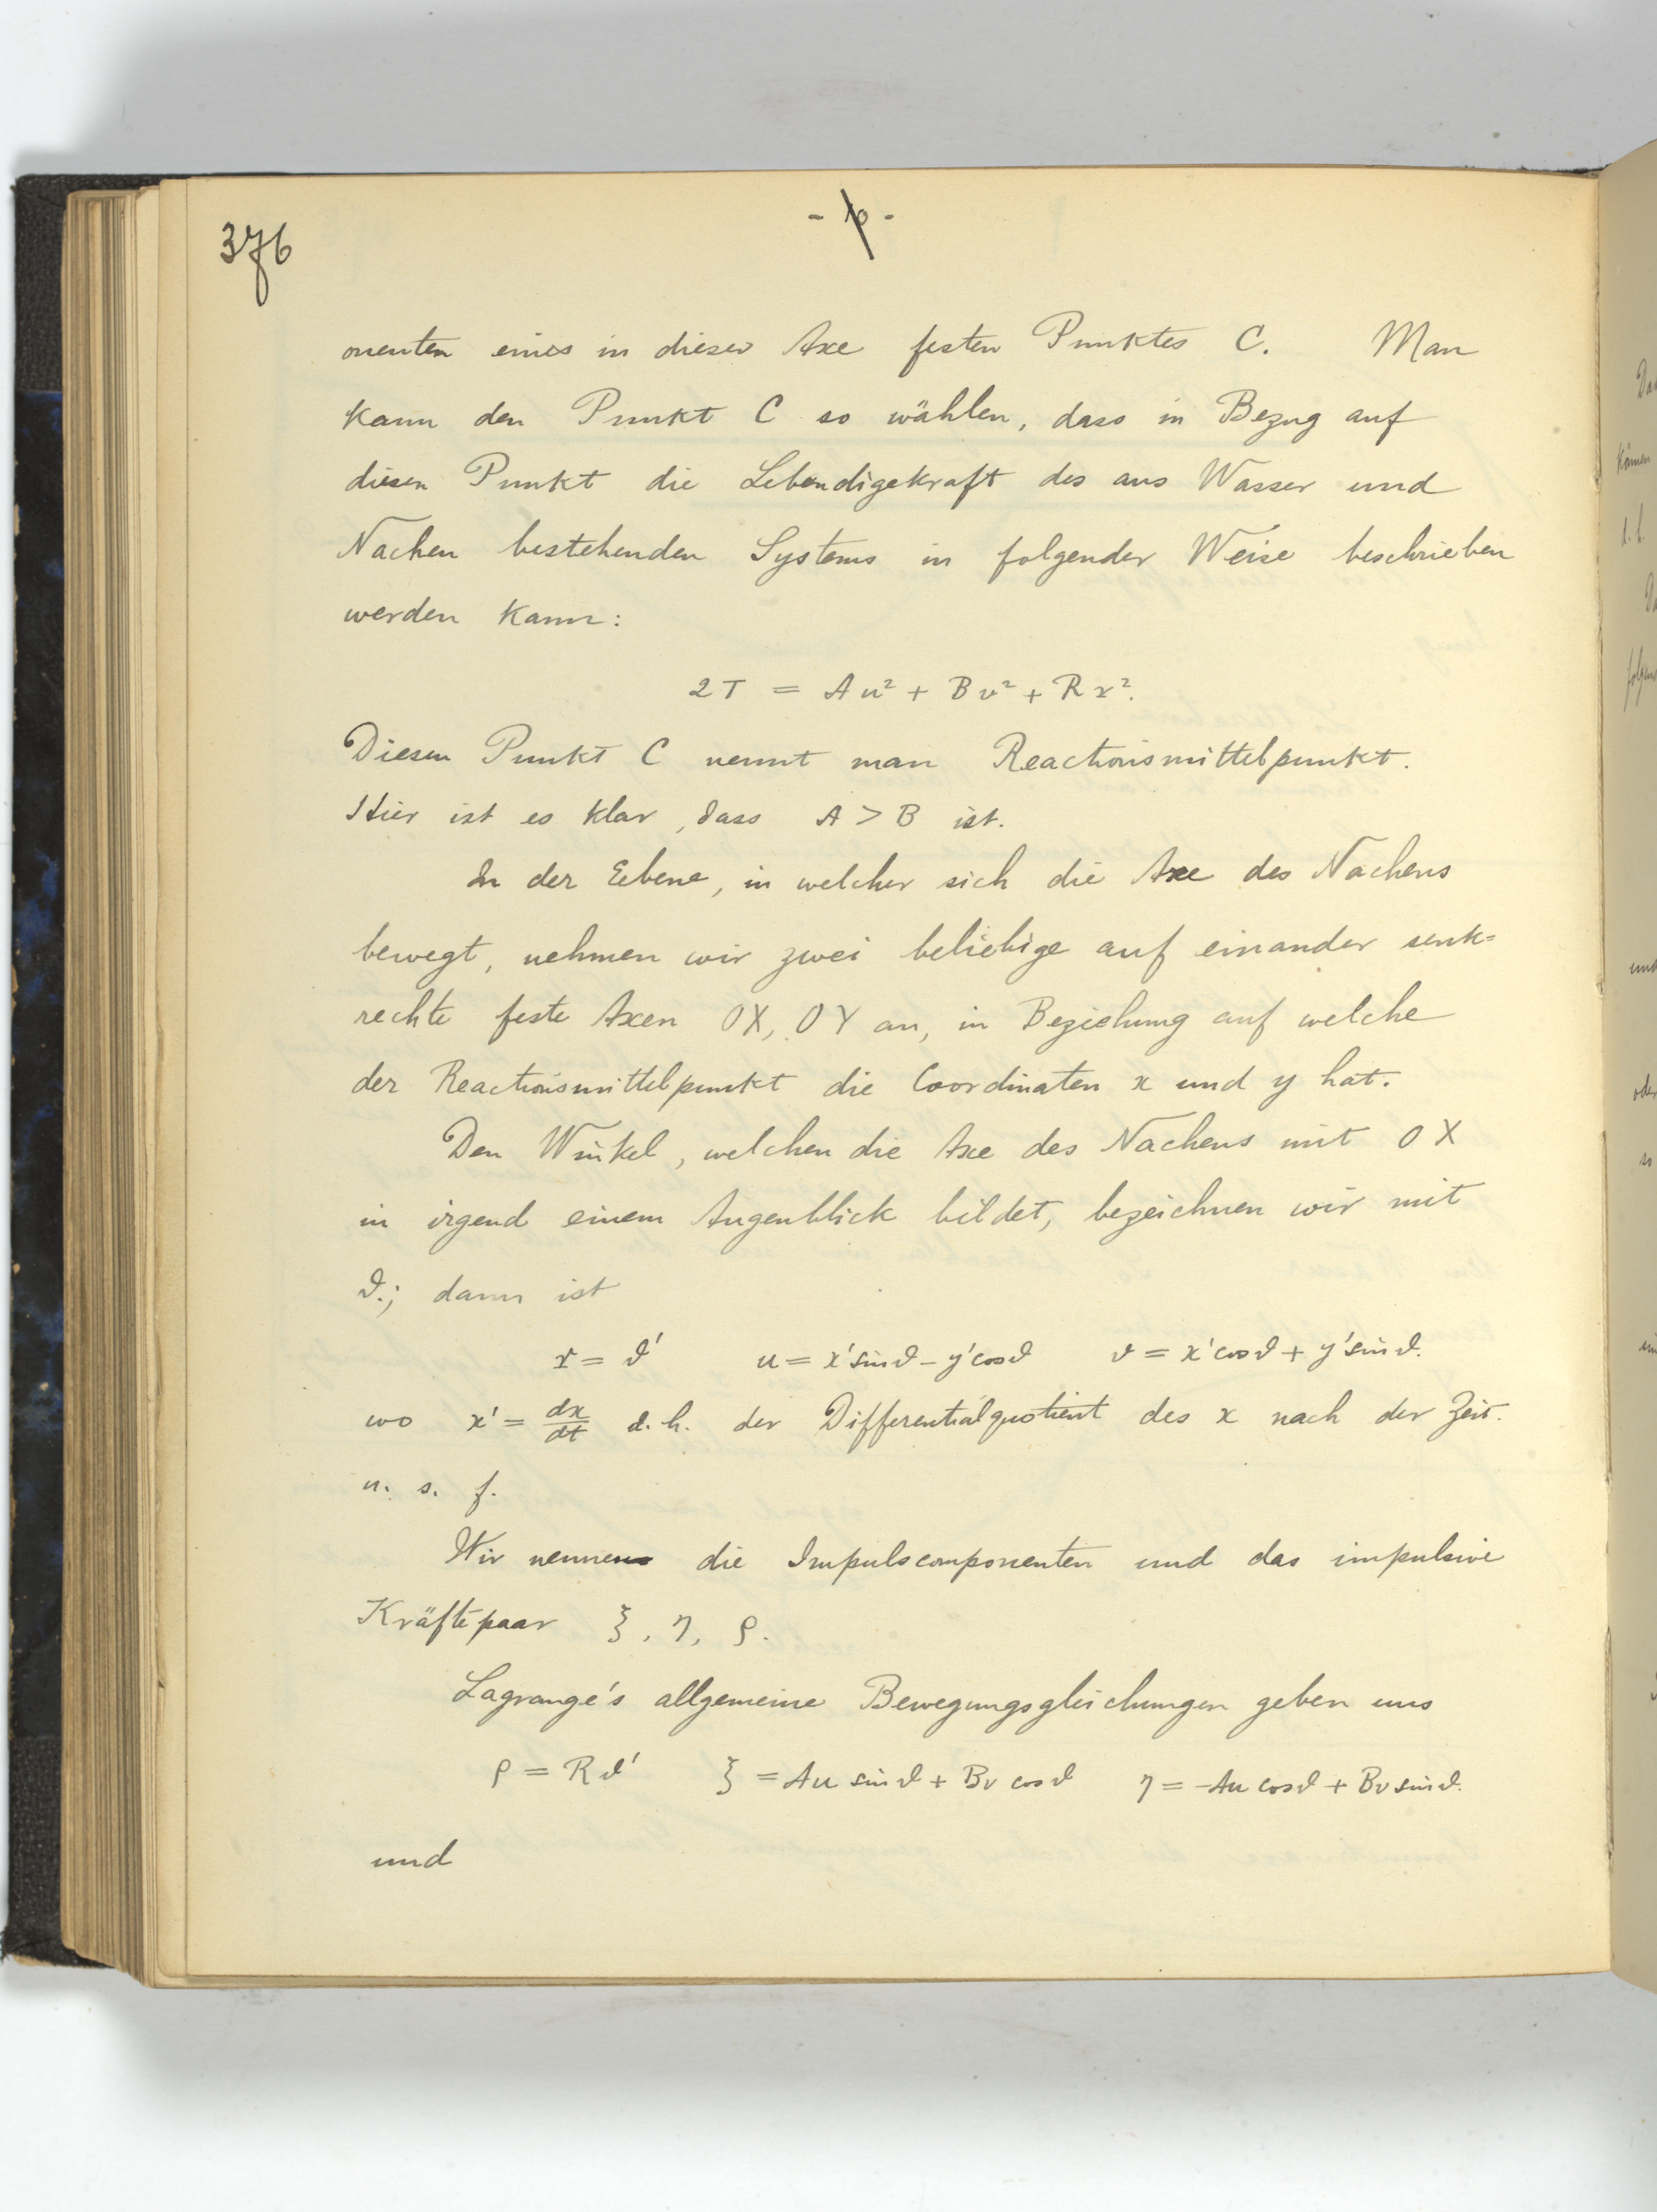 376
onenten eines in dieser Axe festen Punktes C. Man
kann den Punkt C so wählen, dass in Bezug auf
diesen Punkt die Lebendigekraft des aus Wasser und
Nachen bestehenden Systems in folgender Weise beschrieben
werden kann:
2T = Au² + Bv² + Rr².
Diesen Punkt C nennt man Reactionsmittelpunkt.
Hier ist es klar, dass A > B ist.
In der Eebene, in welcher sich die Axe des Nachens
bewegt, nehmen wir zwei beliebige auf einander senk=
rechte feste Axen OX, OY an, in Beziehung auf welche
der Reactionsmittelpunkt die Coordinaten x und y hat.
Den Winkel, welchen die Axe des Nachens mit OX
in irgend einem Augenblick bildet, bezeichnen wir mit
ϑ.; dann ist
r = ϑ' u = x'sinϑ - y'cosϑ v = x'cosϑ + y'sinϑ.
wo x' = dx/dt d.h. der Differentialquotient des x nach der Zeit.
u. s. f.
Wir nennen die Impulscomponenten und das impulsive
Kräftepaar ξ, η, ρ.
Lagrange's allgemeine Bewegungsgleichungen geben uns
ρ = Rϑ' ξ = Au sinϑ + Bv cosϑ η = -Au cosϑ + Bv sinϑ.
und